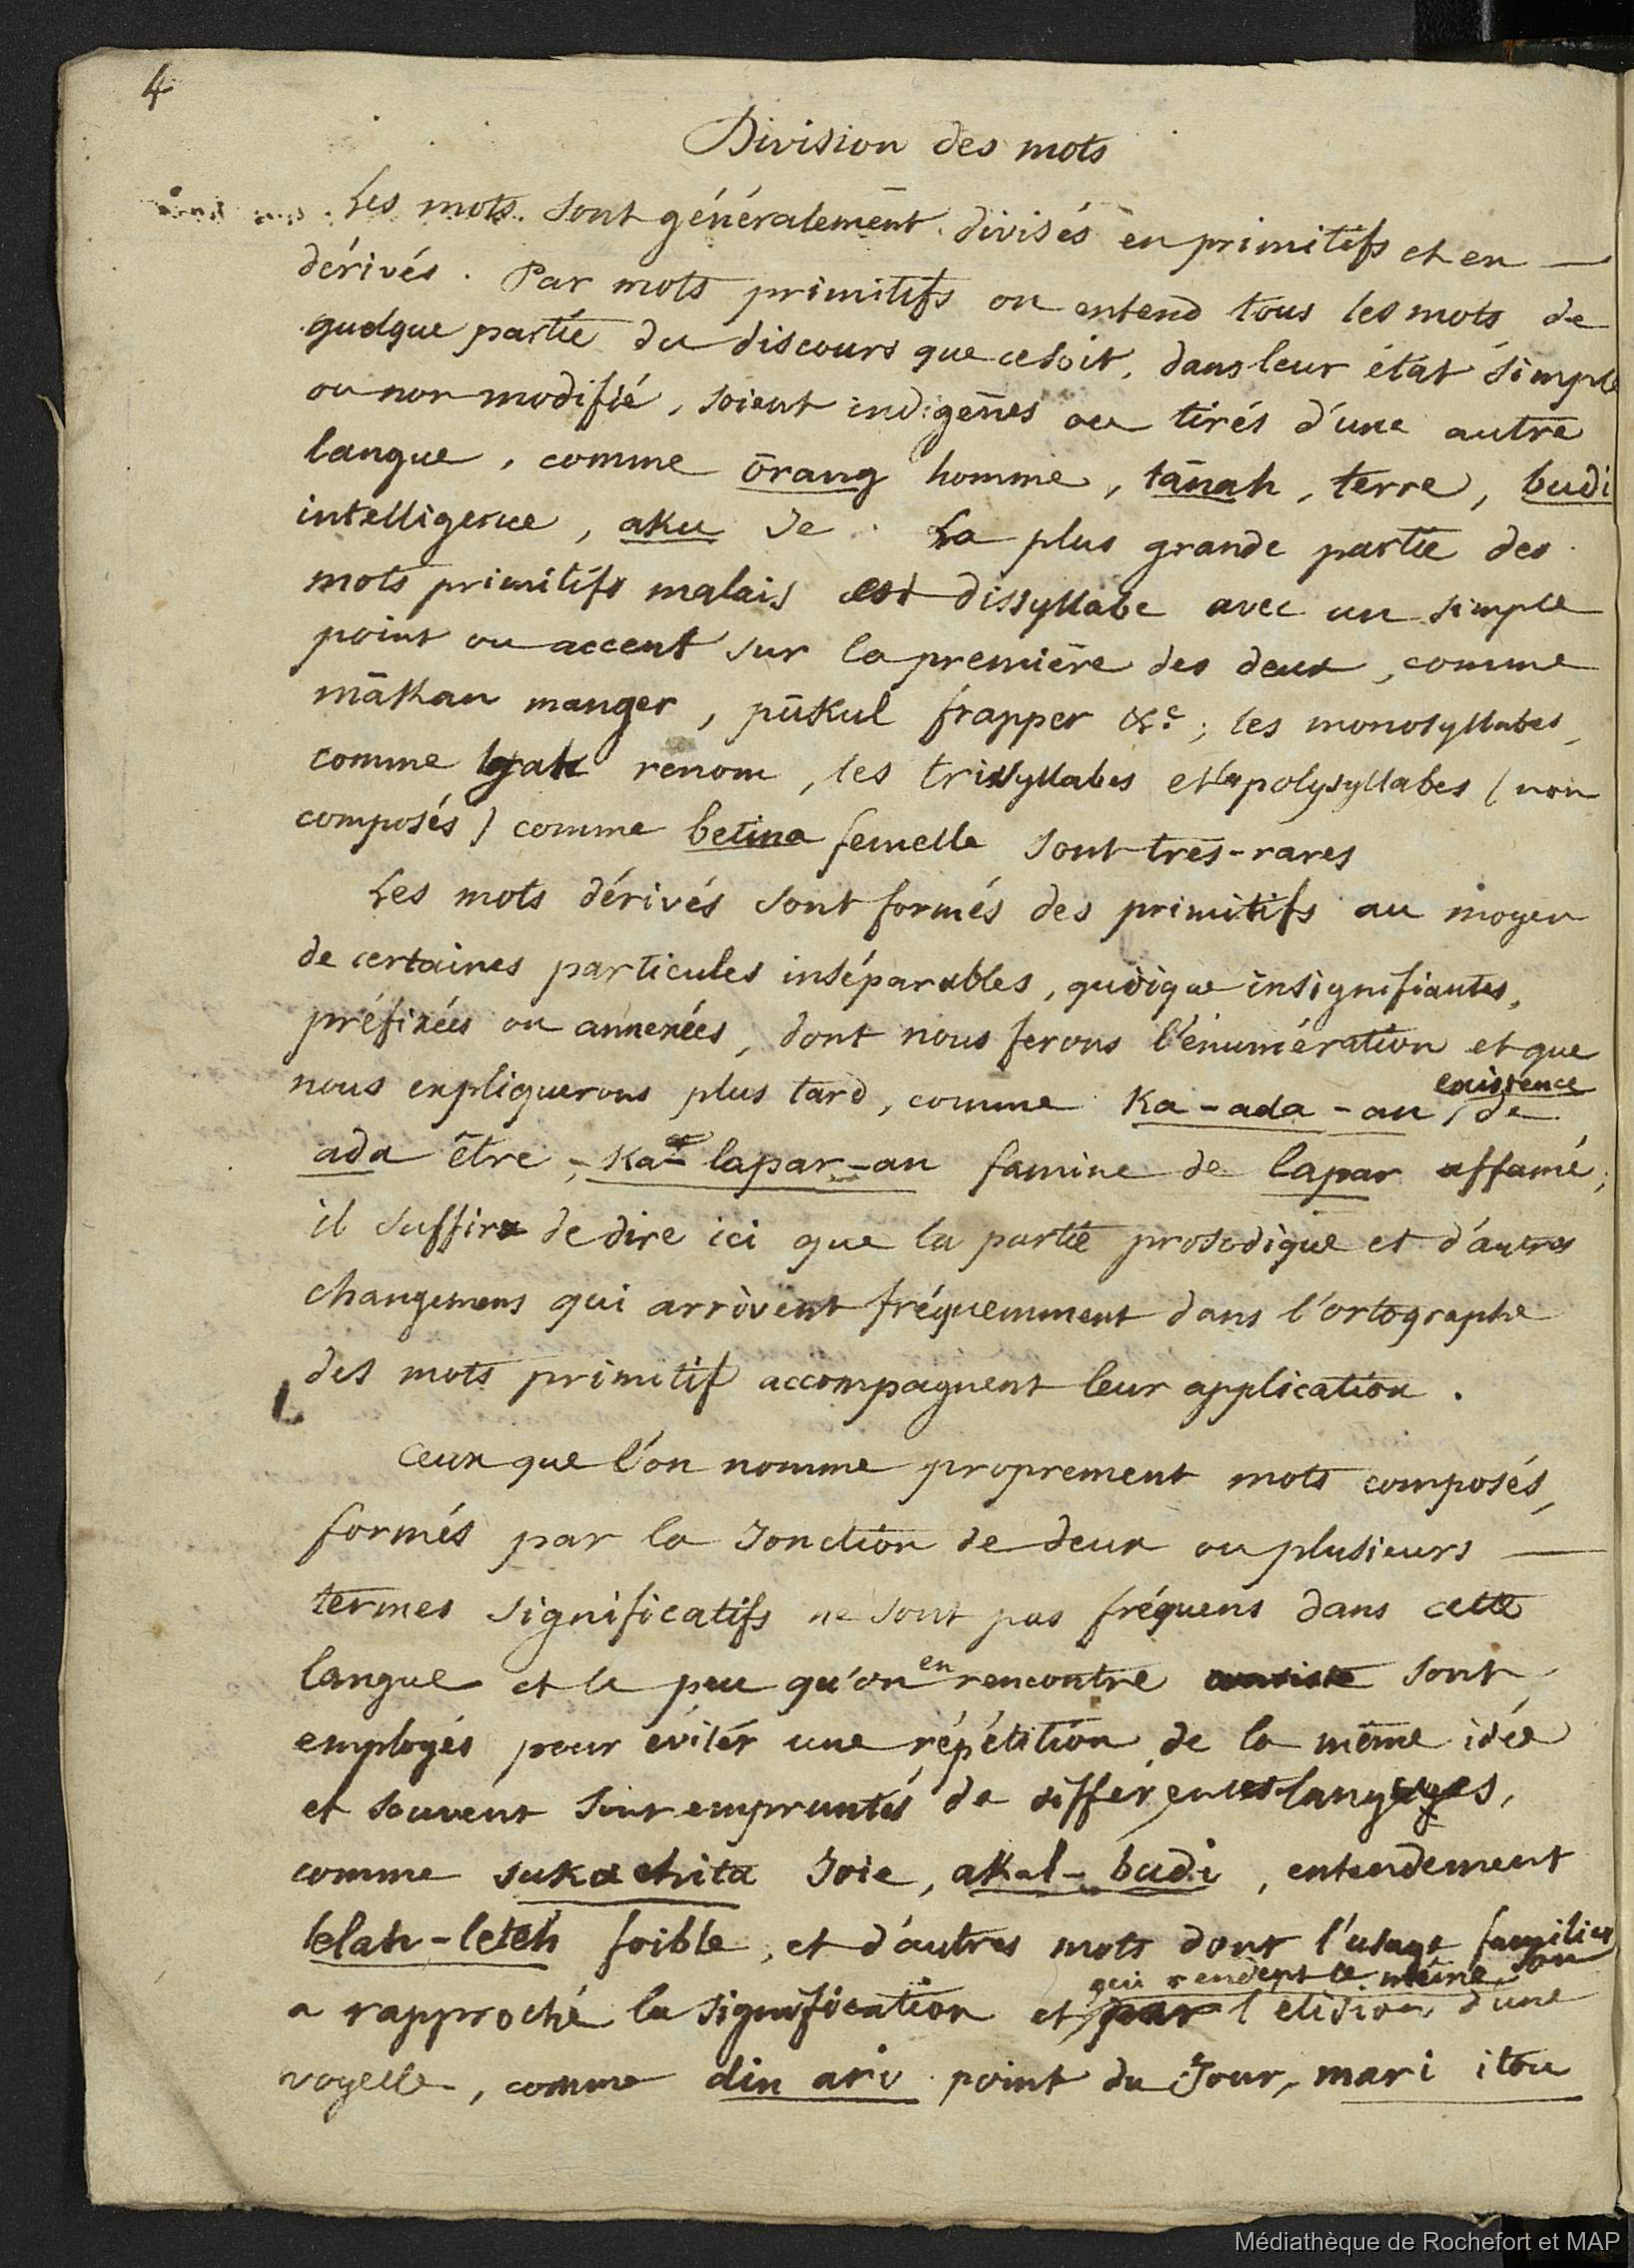 4
Division des mots
Les mots sont généralement divisés en primitifs et en —
dérivés. Par mots primitifs on entend tous les mots de
quelque partie du discours que ce soit, dans leur état simple
ou non modifié, soient indigènes ou tirés d'une autre
langue, comme ōrang homme, tānah, terre, budi
intelligence, aku Je. La plus grande partie des
mots primitifs malais est dissyllabe avec un simple
point ou accent sur la première des deux, comme
mākan manger, pūkul frapper &c; les monosyllabes,
comme renom, les trisyllabes et les polysyllabes (non
composés) comme betina femelle sont très-rares
Les mots dérivés sont formés des primitifs au moyen
de certaines particules inséparables, quoique insignifiantes,
préfixées ou annexées, dont nous ferons l'énumération et que
nous expliquerons plus tard, comme ka-ada-an, existence de
ada être, ka-lapar-an famine de lapar affamé;
il suffira de dire ici que la partie prosodique et d'autres
changemens qui arrivent fréquemment dans l'ortographe
des mots primitif accompagnent leur application.
Ceux que l'on nomme proprement mots composés,
formés par la Jonction de deux ou plusieurs —
termes significatifs ne sont pas fréquens dans cette
langue et le peu qu'on en rencontre sont
employés pour éviter une répétition de la même idée
et souvent sont empruntés de différentes langues,
comme suka chita Joie, akal-budi, entendement
lelah-leteh foible, et d'autres mots dont l'usage familier
qui rendent le même son
a rapproché la signification et par l'élision d'une
voyelle, comme din ari point du Jour, mari itou
Médiathèque de Rochefort et MAP